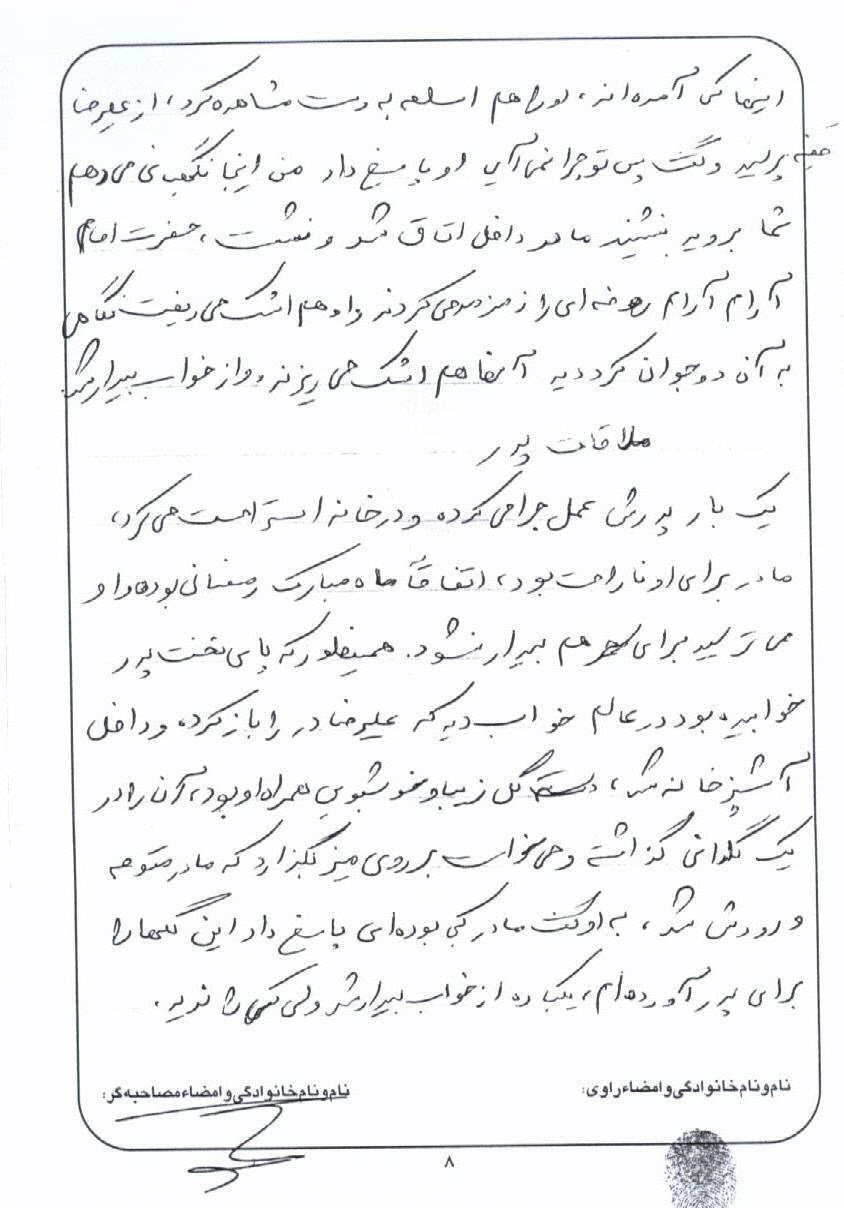 اینها کی آمده‌اند، او را هم اسلحه به دست مشاهده کرد، از علیرضا
پرسید و گفت پس تو چرا نمی‌آیی او پاسخ داد من اینجا نگهبانی می‌دهم
شما بروید بنشینید مادر داخل اتاق شد و نشست، حضرت امام
آرام آرام روضه‌ای را زمزمه می‌کردند و او هم اشک می‌ریخت نگاهی
به آن دو جوان کرد دید آنها هم اشک می‌ریزند و از خواب بیدار شد.
ملاقات پدر
یک بار پدرش عمل جراحی کرده و در خانه استراحت می‌کرد،
مادر برای او ناراحت بود، اتفاقاً ماه مبارک رمضانی بوده و او
می‌ترسید برای سحر هم بیدار نشود. همینطور که پای تخت پدر
خوابیده بود در عالم خواب دید که علیرضا در را باز کرده و داخل
آشپزخانه شد، دسته گل زیبا و خوشبویی همراه او بود، آن را در
یک گلدانی گذاشته و می‌خواست بر روی میز بگذارد که مادر متوجه
ورودش شد، به او گفت مادر کجا بوده‌ای پاسخ داد این گلها را
برای پدر آورده‌ام، یکباره از خواب بیدار شد ولی کسی را ندید.
نام و نام خانوادگی و امضاء راوی:
نام و نام خانوادگی و امضاء مصاحبه‌گر:
۸